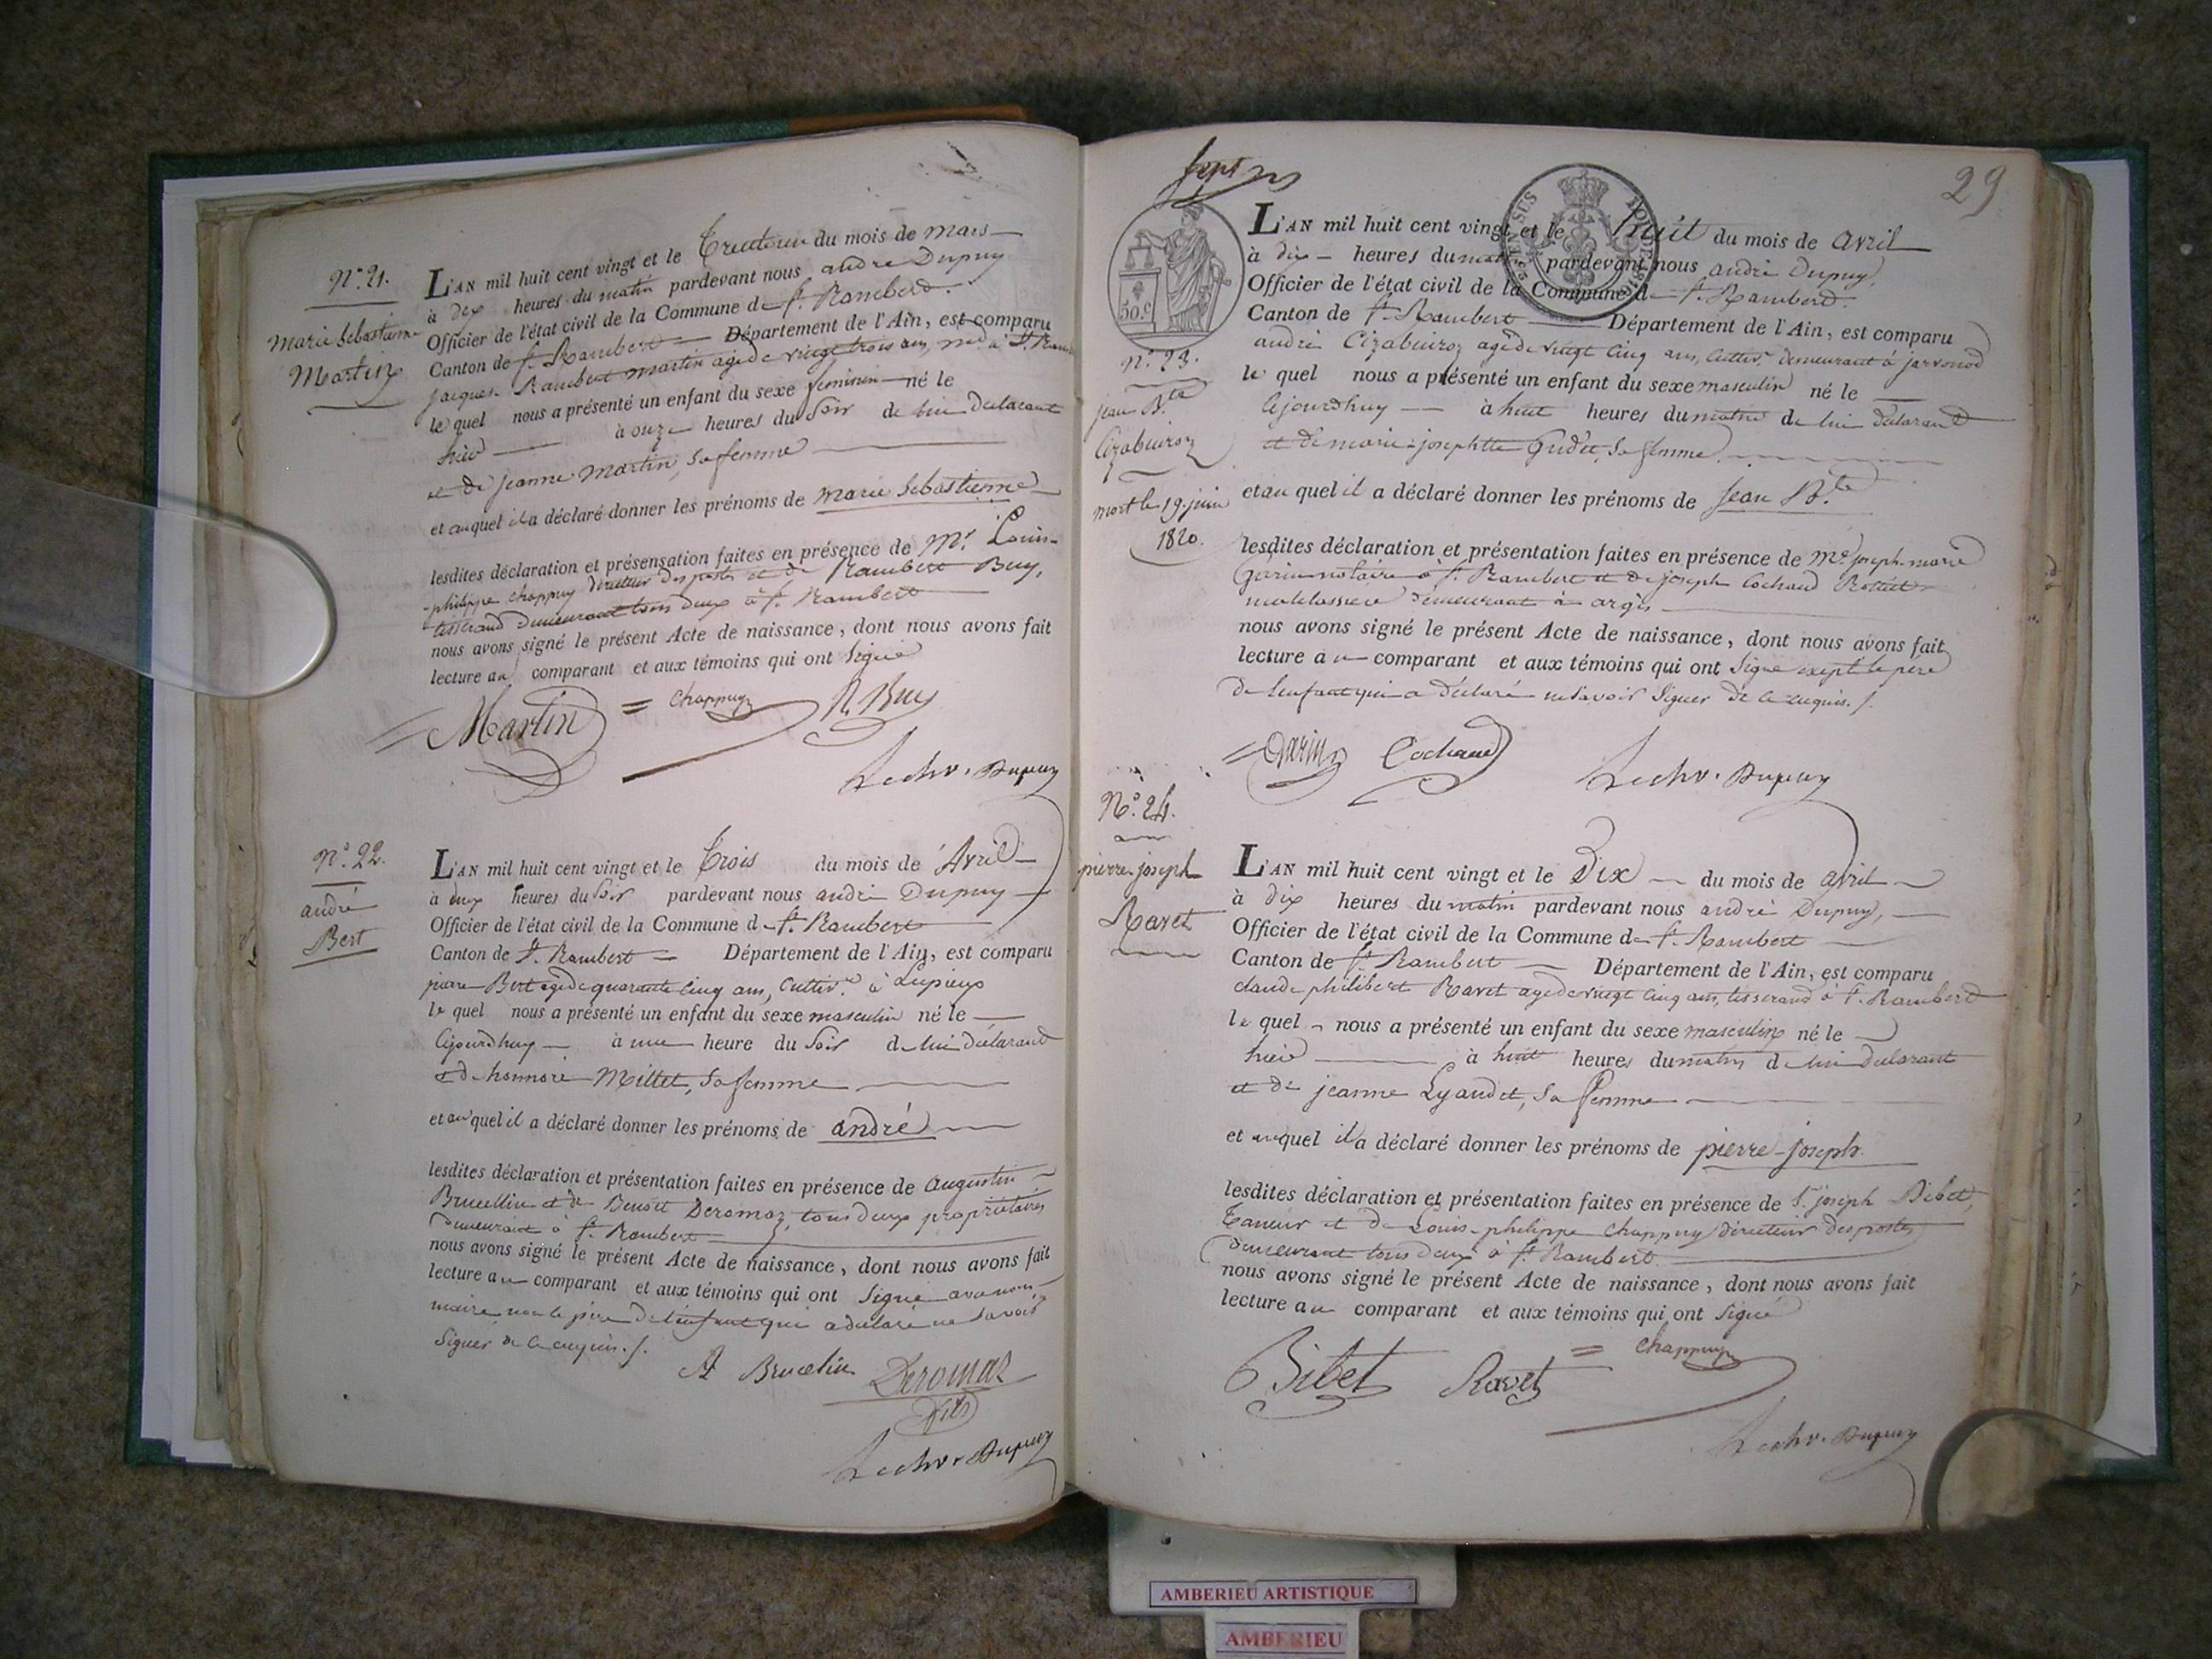 N.º 21.
Marie Sébastienne
Martin
L'AN mil huit cent vingt et le Trente un du mois de mars
à dix heures du matin pardevant nous andré Dupuy
Officier de l'état civil de la Commune de St. Rambert
Canton de St. Rambert Département de l'Ain, est comparu
jacques Rambert martin agé de vingt trois ans, à St. Ram
le quel nous a présenté un enfant du sexe feminin né le
hier à onze heures du Soir de lui déclarant
et de jeanne Martin, sa femme
et auquel il a déclaré donner les prénoms de marie Sébastienne
lesdites déclaration et présensation faites en présence de Mr. Louis-
philippe chappuy directeur des postes et de Rambert Buy,
tisserand demeurant tous deux à St. Rambert
nous avons signé le présent Acte de naissance, dont nous avons fait
lecture au comparant et aux témoins qui ont Signé
Martin = chappuy R. Buy
Dupuy
N.º 22.
andré
Bert
L'AN mil huit cent vingt et le Trois du mois de Avril
à deux heures du Soir pardevant nous andré Dupuy
Officier de l'état civil de la Commune de St. Rambert
Canton de St. Rambert Département de l'Ain, est comparu
pierre Bert agé de quarante cinq ans, Cultivr. à Lupieux
le quel nous a présenté un enfant du sexe masculin né le
Cejourdhuy à une heure du Soir de lui déclarant
et de honnoré Millet, sa femme
et au quel il a déclaré donner les prénoms de andré
lesdites déclaration et présentation faites en présence de augustin
Brucellin et de Benoit Deromaz, tous deux propriétaires
demeurant à St. Rambert
nous avons signé le présent Acte de naissance, dont nous avons fait
lecture au comparant et aux témoins qui ont Signé avec nous
maire non le père de l'enfant qui a déclaré ne Savoir
Signer de ce enquis./.
A Brucelin Deromaz
fils
Dupuy
29
sept
50.C
L'AN mil huit cent vingt et le huit du mois de avril
à dix heures du matin pardevant nous andré Dupuy
Officier de l'état civil de la Commune de St. Rambert
Canton de St. Rambert Département de l'Ain, est comparu
N.º 23.
jean Bte
Cizabuiroz
mort le 19. juin
1820.
andré Cizabuiroz agé de vingt cinq ans, Cultivr. demeurant à javornod
le quel nous a présenté un enfant du sexe masculin né le
Cejourdhuy à huit heures du matin de lui déclarant
et de marie josephtte Gudet, Sa femme
et au quel il a déclaré donner les prénoms de Jean Bte
lesdites déclaration et présentation faites en présence de Me. joseph marie
Garin notaire à St. Rambert et de joseph Cochand
demeurant à argis
nous avons signé le présent Acte de naissance, dont nous avons fait
lecture au comparant et aux témoins qui ont Signé exepté le père
de l'enfant qui a déclaré ne Savoir Signer de ce enquis./.
= Garin Cochand
Dupuy
N.º 24.
pierre-joseph
Ravet
L'AN mil huit cent vingt et le Dix du mois de avril
à dix heures du matin pardevant nous andré Dupuy,
Officier de l'état civil de la Commune de St. Rambert
Canton de St. Rambert Département de l'Ain, est comparu
claude philibert Ravet agé de vingt cinq ans, tisserand à St. Rambert
le quel nous a présenté un enfant du sexe masculin né le
hier à huit heures du matin de lui déclarant
et de jeanne Lyaudet, Sa femme
et auquel il a déclaré donner les prénoms de pierre-joseph
lesdites déclaration et présentation faites en présence de Sr. joseph Bibet,
Taneur et de Louis-philippe chappuy directeur des postes
demeurant tous deux à St. Rambert
nous avons signé le présent Acte de naissance, dont nous avons fait
lecture au comparant et aux témoins qui ont Signé
Bibet Ravet = chappuy
Dupuy
AMBERIEU ARTISTIQUE
AMBERIEU